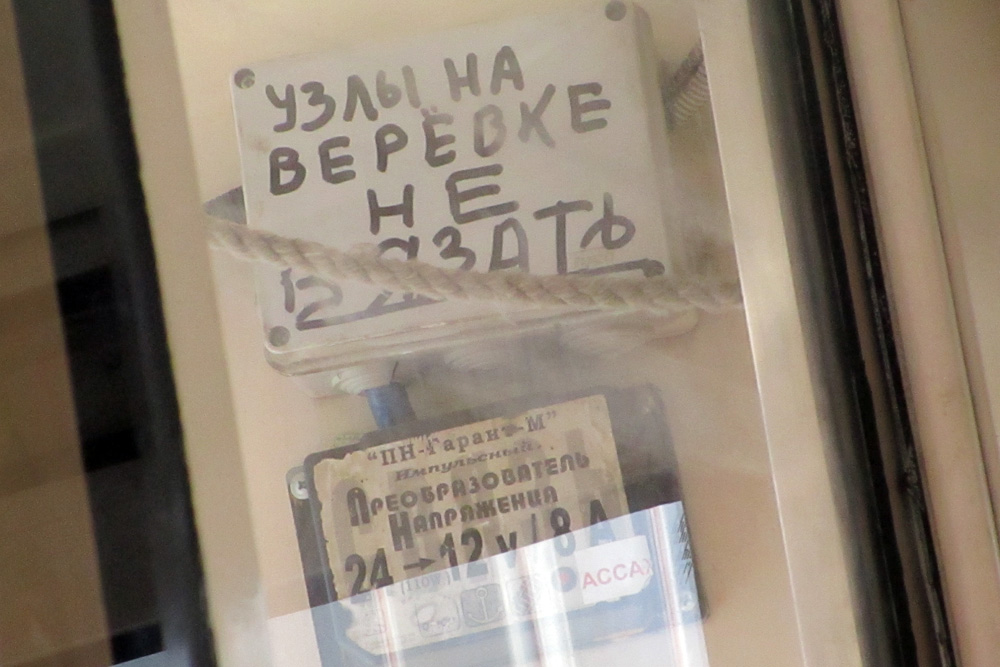 УЗЛЫ НА
ВЕРЁВКЕ
НЕ
ВЯЗАТЬ
"ПН-Гарант-М"
Импульсный
ПРЕОБРАЗОВАТЕЛЬ
НАПРЯЖЕНИЯ
24→12v/8А